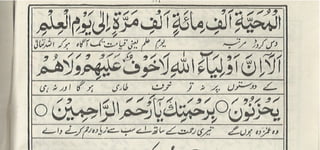 الْمُحَيَّةِ اَلْفِ مِائَةِ اَلْفِ مَرَّةٍ اِلٰى يَوْمِ الْعِلْمِ
دس کروڑ مرتبہ یوم علم یعنی قیامت تک آگاہ ہو کہ اللہ تعالیٰ
اَلَآ اِنَّ اَوْلِيَآءَ اللهِ لَاخَوْفٌ عَلَيْهِمْ وَلَاهُمْ
کے دوستوں پر نہ تو خوف طاری ہو گا اور نہ ہی
يَحْزَنُوْنَ ○ بِرَحْمَتِكَ يَآ اَرْحَمَ الرَّاحِمِيْنَ ○
وہ غمزدہ ہوں گے تیری رحمت کے ساتھ اے سب سے زیادہ رحم کرنے والے